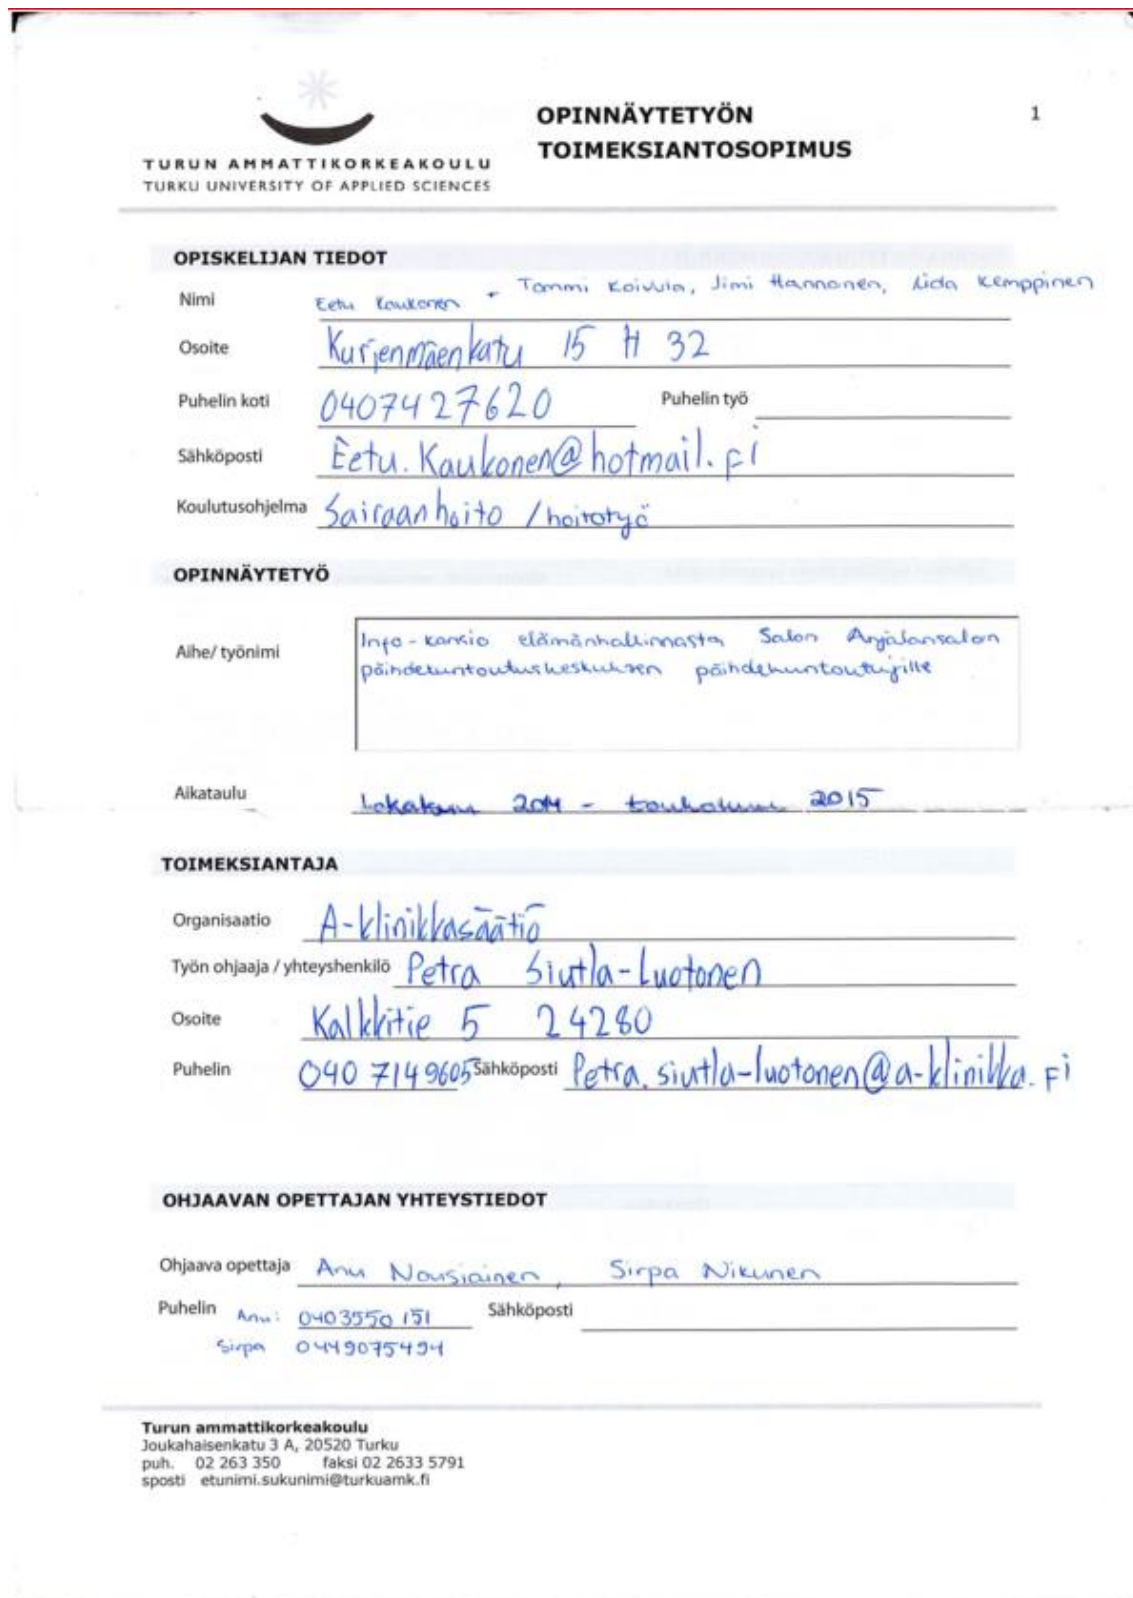 OPINNÄYTETYÖN
TOIMEKSIANTOSOPIMUS
1
TURUN AMMATTIKORKEAKOULU
TURKU UNIVERSITY OF APPLIED SCIENCES
OPISKELIJAN TIEDOT
Nimi Eetu Kaukonen + Tommi Koivula, Jimi Hannonen, Iida Kemppinen
Osoite Kurjenmäenkatu 15 H 32
Puhelin koti 0407427620 Puhelin työ
Sähköposti Eetu.Kaukonen@hotmail.fi
Koulutusohjelma Sairaanhoito / hoitotyö
OPINNÄYTETYÖ
Aihe/ työnimi Info-kansio elämänhallinnasta Salon Anjalansalon
päihdekuntoutuskeskuksen päihdekuntoutujille
Aikataulu Lokakuu 2014 - toukokuu 2015
TOIMEKSIANTAJA
Organisaatio A-klinikkasäätiö
Työn ohjaaja / yhteyshenkilö Petra Siutla-Luotonen
Osoite Kalkkitie 5 24280
Puhelin 040 7149605 Sähköposti Petra.siutla-luotonen@a-klinikka.fi
OHJAAVAN OPETTAJAN YHTEYSTIEDOT
Ohjaava opettaja Anu Nousiainen, Sirpa Nikunen
Puhelin Anu: 0403550 151 Sähköposti
Sirpa 0449075494
Turun ammattikorkeakoulu
Joukahaisenkatu 3 A, 20520 Turku
puh. 02 263 350 faksi 02 2633 5791
sposti etunimi.sukunimi@turkuamk.fi